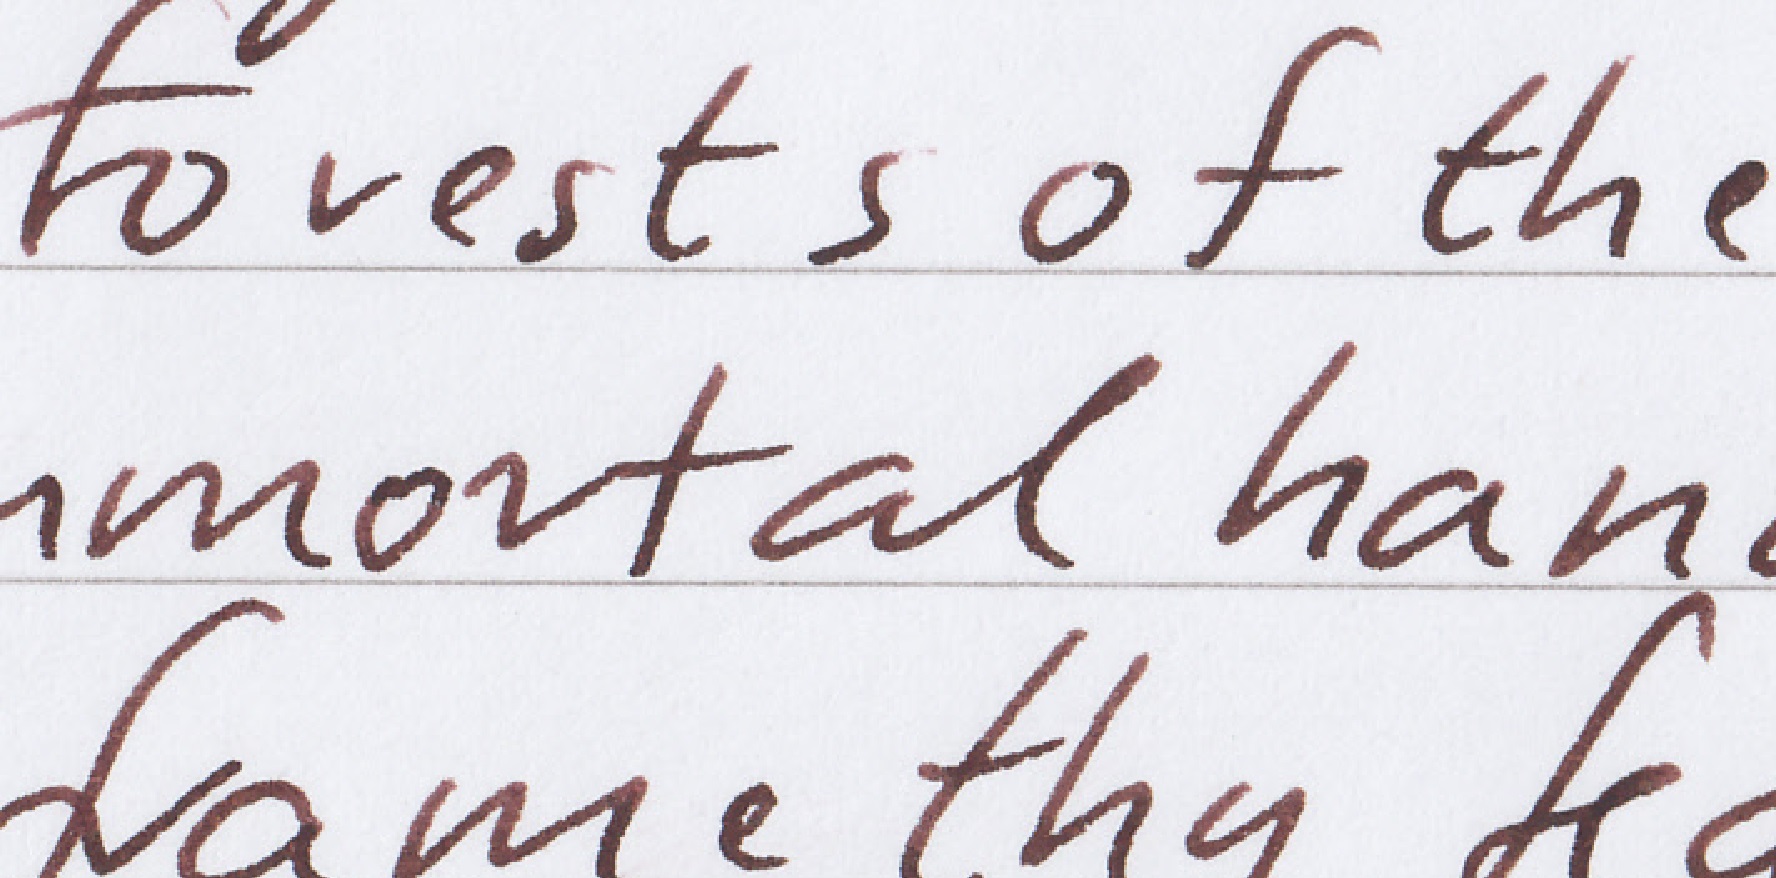 forests of the
mmortal han
frame thy fea